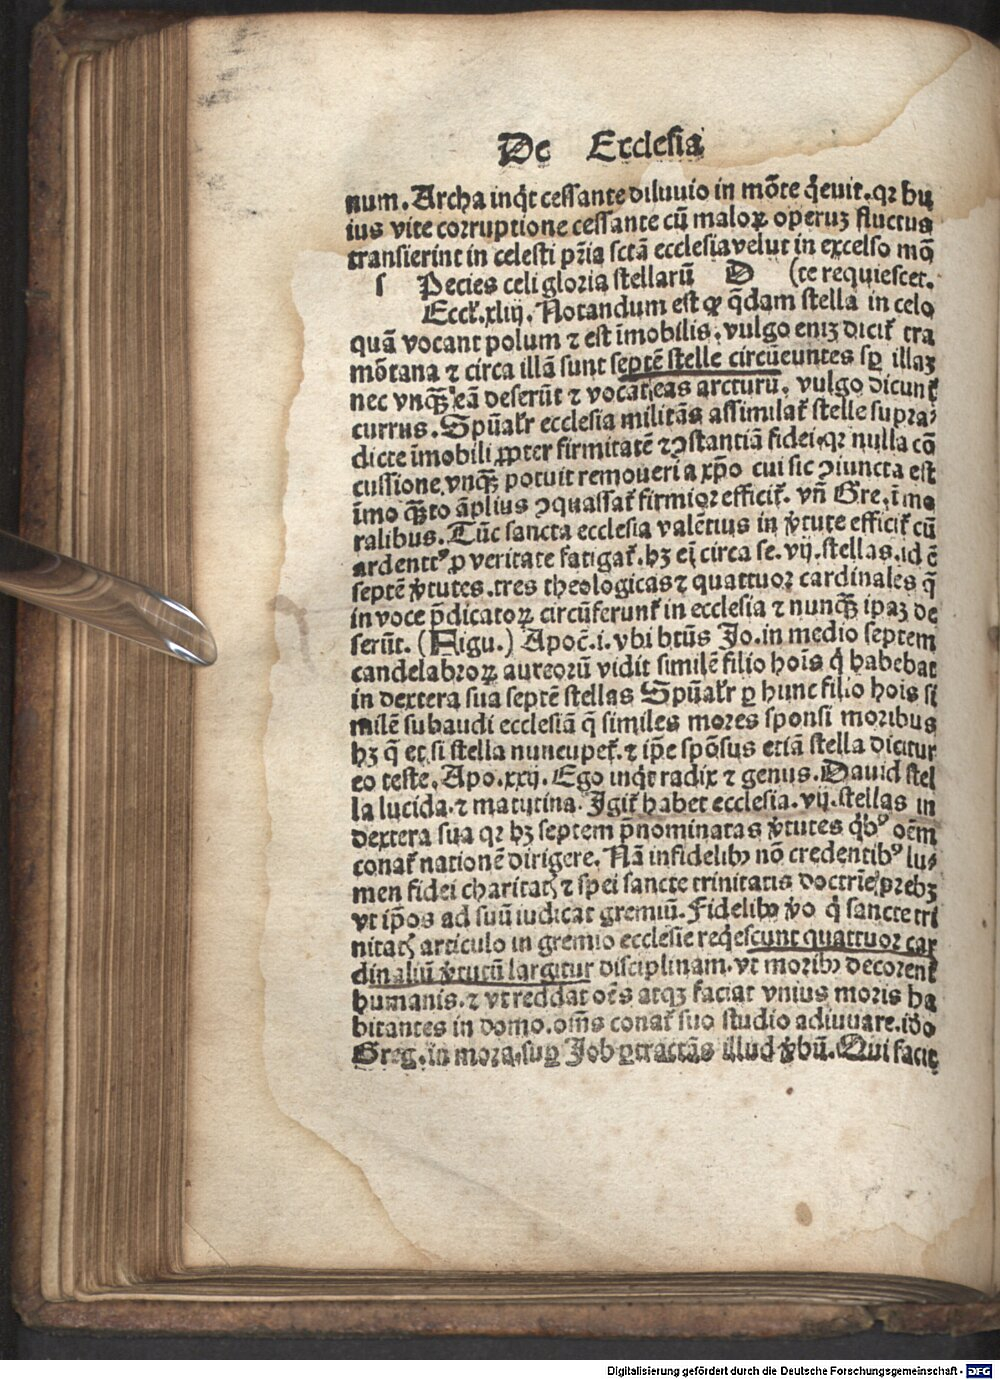 De Ecclesia
num. Archa inqͥt cessante diluuio in mōte qͥeuit. qꝛ hu
ius vite corruptione cessante cū maloꝝ operuʒ fluctus
transierint in celesti pr̄ia sctā ecclesia velut in excelso mō
s Pecies celi gloria stellarū D (te requiescet.
Eccl̓. xliij. Notandum est ꝙ q̄dam stella in celo
quā vocant polum ⁊ est īmobilis, vulgo eniʒ dicit᷑ tra
mōtana ⁊ circa illā sunt septē stelle circūeuntes sꝑ illaʒ
nec vnqᷓꝫ eā deserūt ⁊ vocātꝭ eas arcturū, vulgo dicunt᷑
currus. Spūal̓r ecclesia militās assimilat᷑ stelle supra
dicte īmobili ꝓpter firmitatē ⁊ ꝯstantiā fidei. qꝛ nulla cō
cussione vnqᷓꝫ potuit remoueri a xp̄o cui sic ꝯiuncta est
īmo qᷓꝫto āplius ꝯquassat᷑ firmior efficit᷑. vn̄ Gre. ī mo
ralibus. Tūc sancta ecclesia valētius in v̓tute efficit᷑ cū
ardentꝰ ꝓ veritate fatigat᷑. hʒ eī circa se. vij. stellas. id ē
septē v̓tutes. tres theologicas ⁊ quattuor cardinales q̄
in voce p̄dicatoꝝ circūferunt᷑ in ecclesia ⁊ nunqᷓꝫ ipaʒ de
serūt. (Figu.) Apoc̄. i. vbi btūs Jo. in medio septem
candelabroꝝ aureorū vidit similē filio hoīs qͥ habebat
in dextera sua septē stellas Spūal̓r ꝑ hunc filio hois si
milē subaudi ecclesiā q̄ similes mores sponsi moribus
hʒ q̄ et si stella nuncupet᷑. ⁊ ip̄e spōsus etiā stella dicitur
eo teste. Apo. xxij. Ego inqͥt radix ⁊ genus. Dauid stel
la lucida. ⁊ matutina. Jgit᷑ habet ecclesia. vij. stellas in
dextera sua qꝛ hʒ septem p̄nominatas v̓tutes qͥbꝰ oēm
conat᷑ nationē dirigere. Nā infidelibꝫ nō credentibꝰ lu⸗
men fidei charitatꝭ ⁊ spei sancte trinitatis doctrīe prebʒ
vt ip̄os ad suū iudicat gremiū. Fidelibꝫ v̓o qͥ sancte tri
nitatꝭ articulo in gremio ecclesie reqͥescunt quattuor car
dinaliū v̓tutū largitur disciplinam. vt moribꝫ decorent᷑
humanis. ⁊ vt reddat oēs atqꝫ faciat vnius moris ha
bitantes in domo. om̄s conat᷑ suo studio adiuuare. iđo
Greg. in mora. suꝑ Job ꝑtractās illud v̓bū. Qui facit
Digitalisierung gefördert durch die Deutsche Forschungsgemeinschaft - DFG